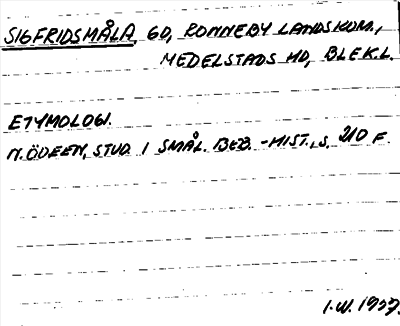 SIGFRIDSMÅLA GD, RONNEBY LANDSKOM.,
MEDELSTADS HD, BLEK.L.
ETYMOLOGI.
N.ÖDEEN, STUD. I SMÅL. BEB.-HIST., S. 210 F.
I.W. 1937.